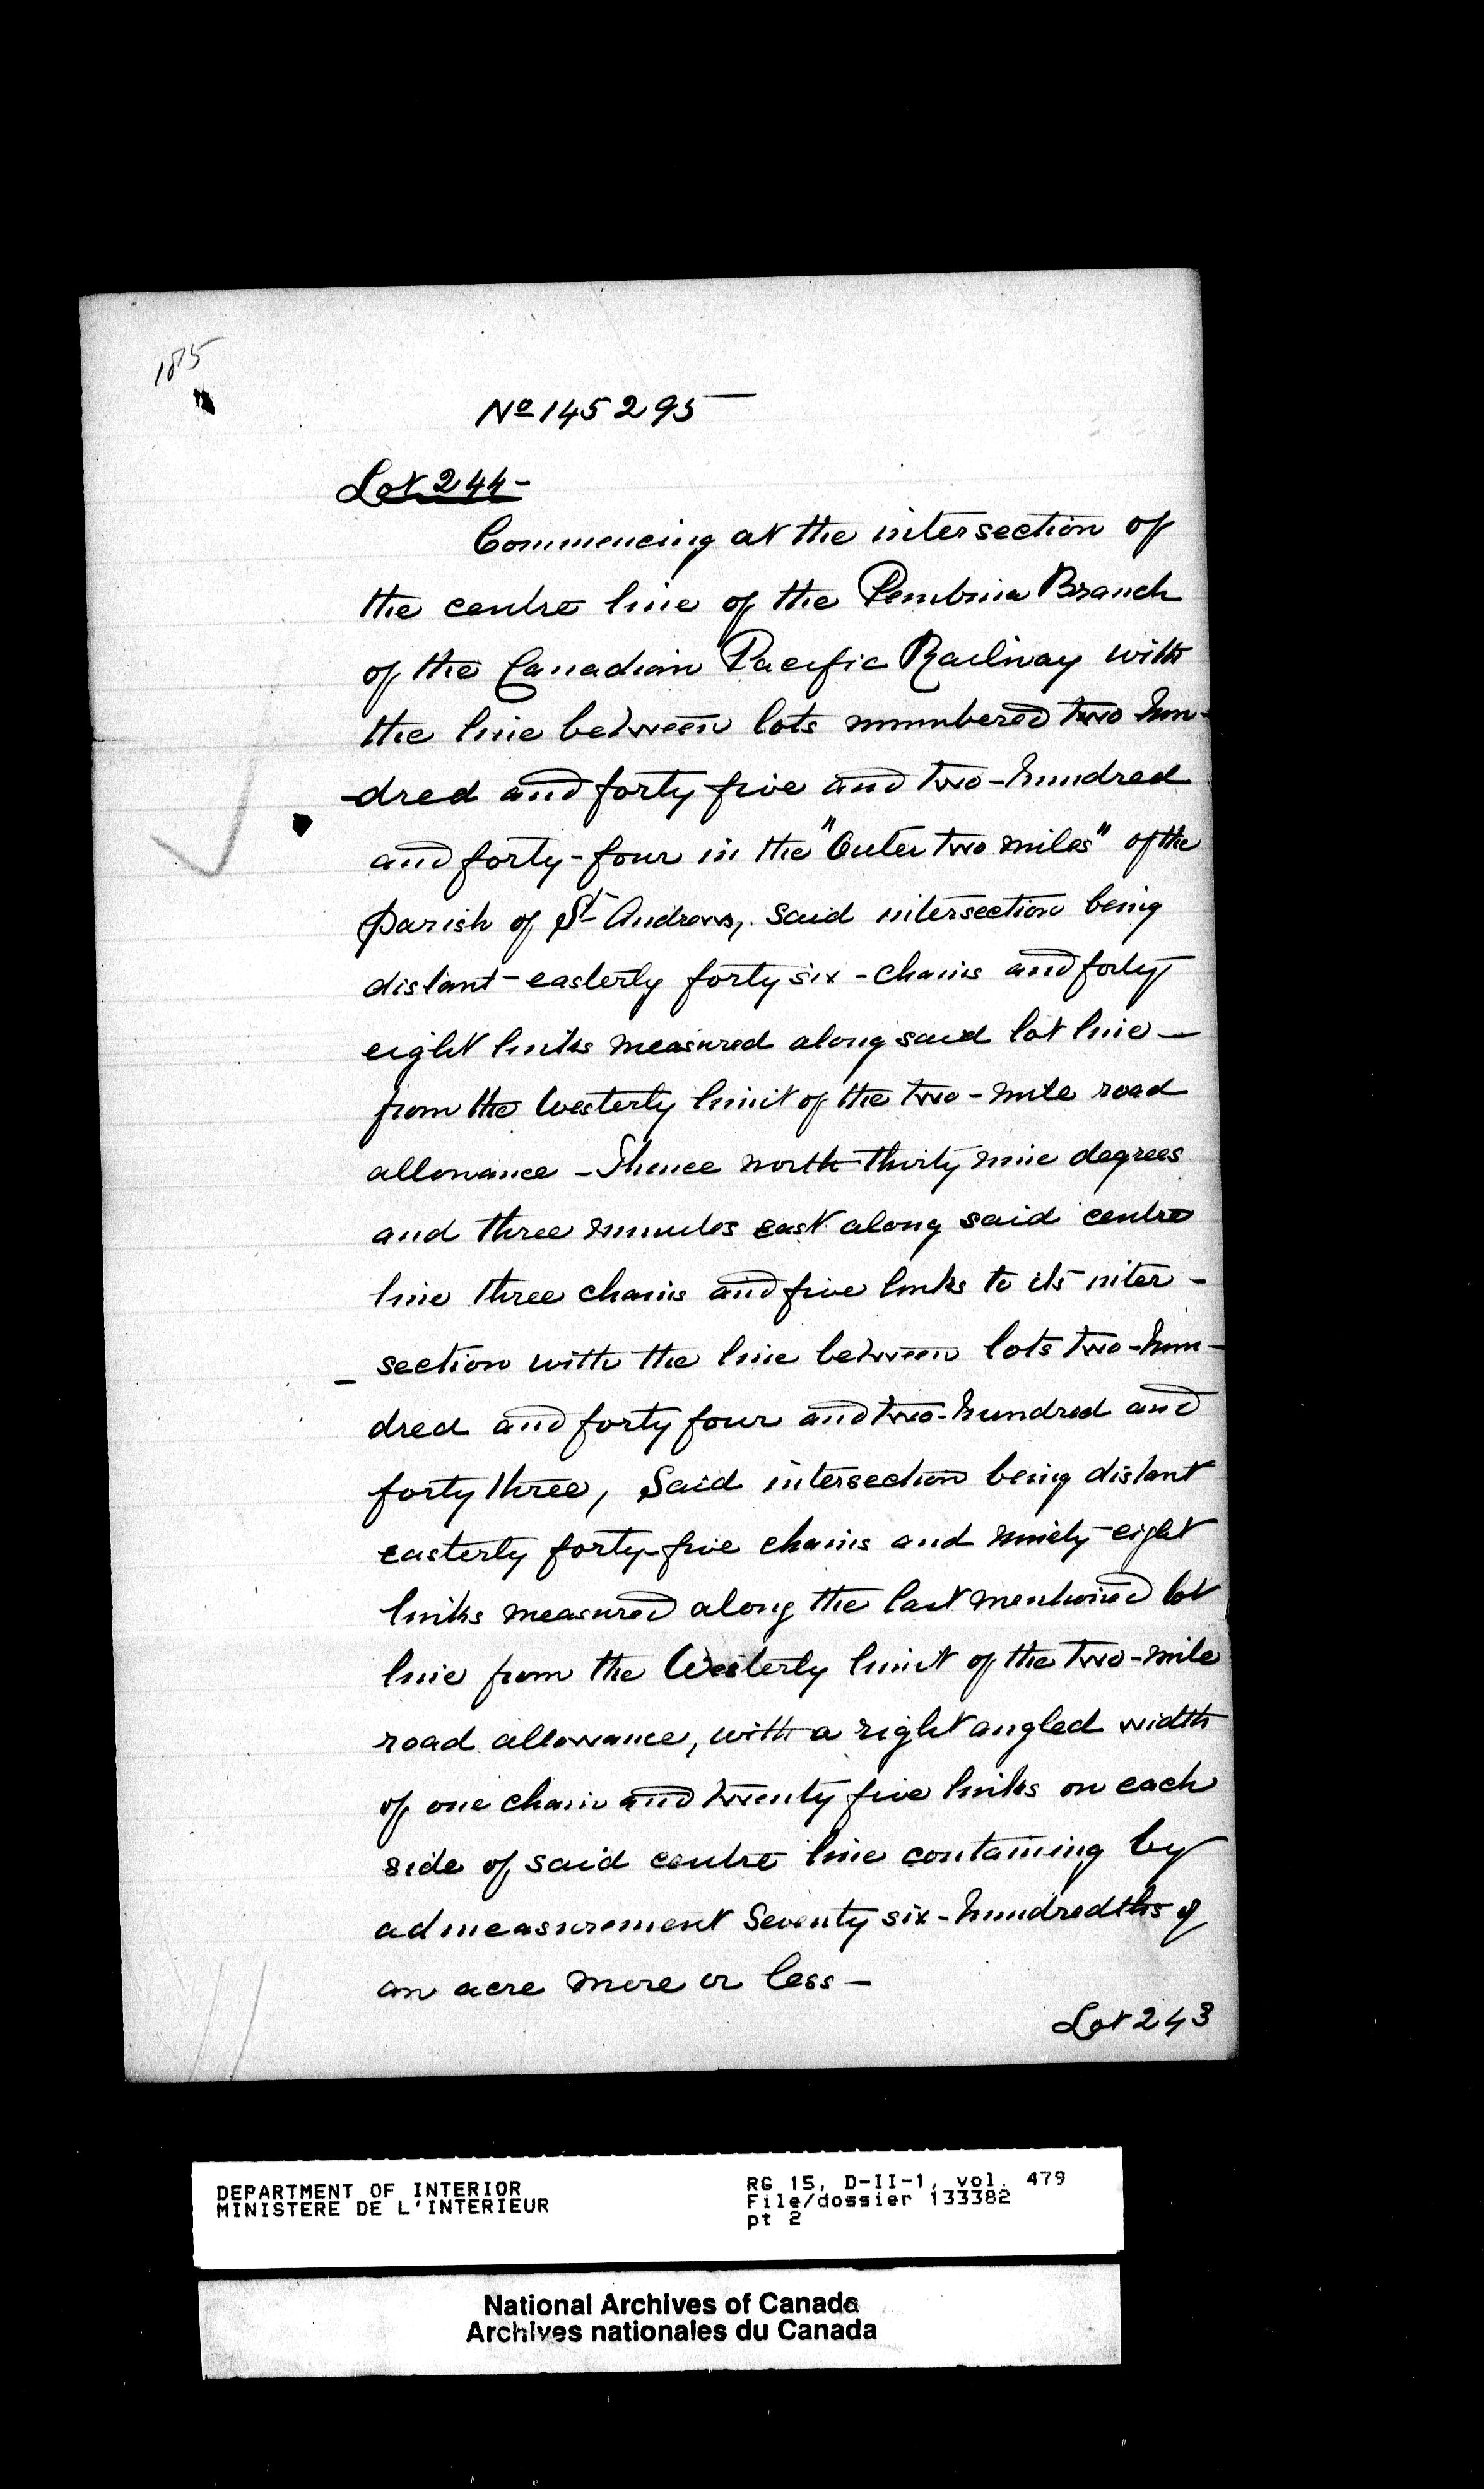 185
No 145295
Lot 244-
Commencing at the intersection of
the centre line of the Pembina Branch
of the Canadian Pacific Railway with
the line between lots numbered two hun-
-dred and forty five and two-hundred
and forty-four in the "Outer two miles" of the
Parish of St Andrews, said intersection being
distant - easterly forty six - chains and forty
eight links measured along said lot line -
from the Westerly limit of the two - mile road
allowance - Thence north thirty nine degrees
and three minutes east along said centre
line three chains and five links to its inter-
- section with the line between lots two-hun-
dred and forty four and two-hundred and
forty three, Said intersection being distant
easterly forty-five chains and ninety eight
links measured along the last mentioned lot
line from the Westerly limit of the two-mile
road allowance, with a right angled width
of one chain and twenty five links on each
side of said centre line containing by
admeasurement Seventy six-hundredths of
an acre more or less -
Lot 243
DEPARTMENT OF INTERIOR
MINISTERE DE L'INTERIEUR
RG 15, D-II-1, vol. 479
File/dossier 133382
pt 2
National Archives of Canada
Archives nationales du Canada